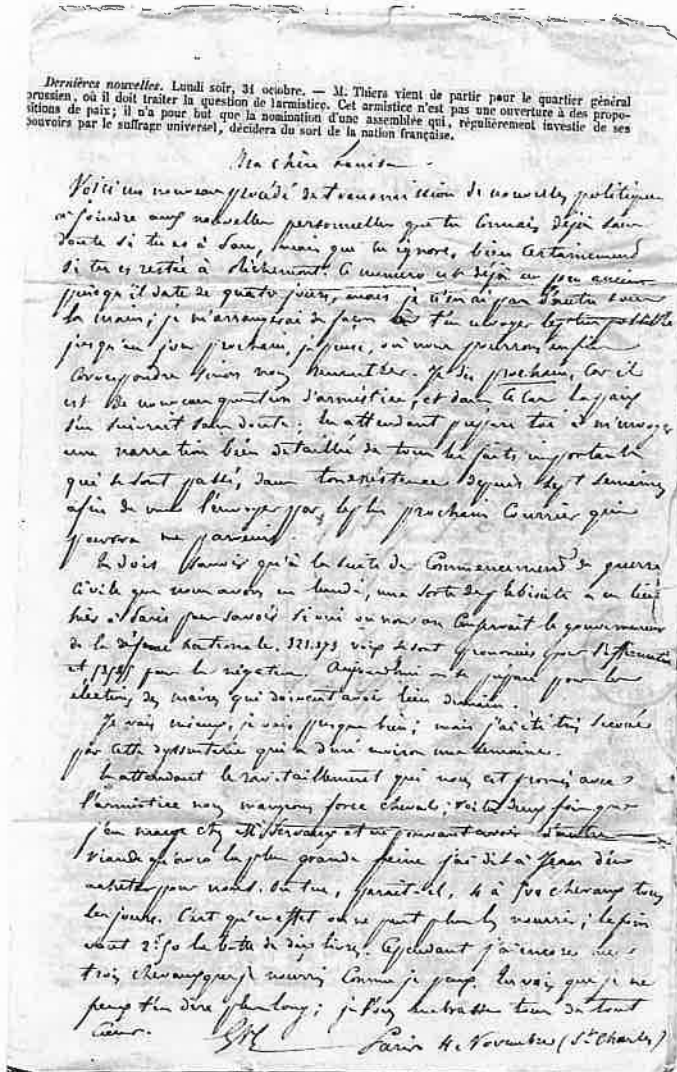 Dernières nouvelles. Lundi soir, 31 octobre. — M. Thiers vient de partir pour le quartier général
prussien, où il doit traiter la question de l'armistice. Cet armistice n'est pas une ouverture à des propo-
sitions de paix; il n'a pour but que la nomination d'une assemblée qui, régulièrement investie de ses
pouvoirs par le suffrage universel, décidera du sort de la nation française.
Ma chère Louisa
Voici un nouveau procédé de transmission de nouvelles politiques
à joindre aux nouvelles personnelles que tu connais déjà sans
doute si tu es à mais que tu ignores bien certainement
si tu es restée à Ce numéro est déjà un peu ancien
puisqu'il date de quatre jours, mais je n'en ai pas d'autre sous
la main; je m'arrangerai de façon à t'en envoyer le plus possible
jusqu'au jour prochain, je pense, où nous pourrons enfin
correspondre sinon nous Je dis prochain, car il
est de nouveau question d'armistice, et dans ce cas la paix
s'en suivrait sans doute; en attendant prépare toi à m'envoyer
une narration bien détaillée de tous les faits importants
qui se sont passés dans ton existence depuis sept semaines
afin de me l'envoyer par le plus prochain courrier qui
pourra me parvenir.
Tu dois savoir qu'à la suite du commencement de guerre
civile que nous avons eu lundi, une sorte de plébiscite a eu lieu
hier à Paris pour savoir si oui ou non on conservait le gouvernement
de la défense nationale. 321.373 voix se sont prononcées pour l'affirmative
et pour la négative. Aujourd'hui on se prépare pour les
élections des maires qui doivent avoir lieu demain.
Je vais mieux, je vais presque bien; mais j'ai été très secoué
par cette dyssenterie qui a duré environ une semaine.
En attendant le ravitaillement qui nous est promis avec
l'armistice nous mangeons force cheval; voilà deux fois que
j'en mange chez Mr Servaux et ne pouvant avoir d'autre
viande qu'avec la plus grande peine j'ai dit à Jean d'en
acheter pour nous. On tue, parait-il, 4 à 500 chevaux tous
les jours. C'est qu'en effet on ne peut plus les nourrir; le foin
vaut 2f50 la botte de dix livres. Cependant j'ai encore mes
trois chevaux que je nourris comme je peux. Tu vois que je ne
peux t'en dire plus long; je vous embrasse tous de tout
cœur.
Paris 4 Novembre (St Charles)